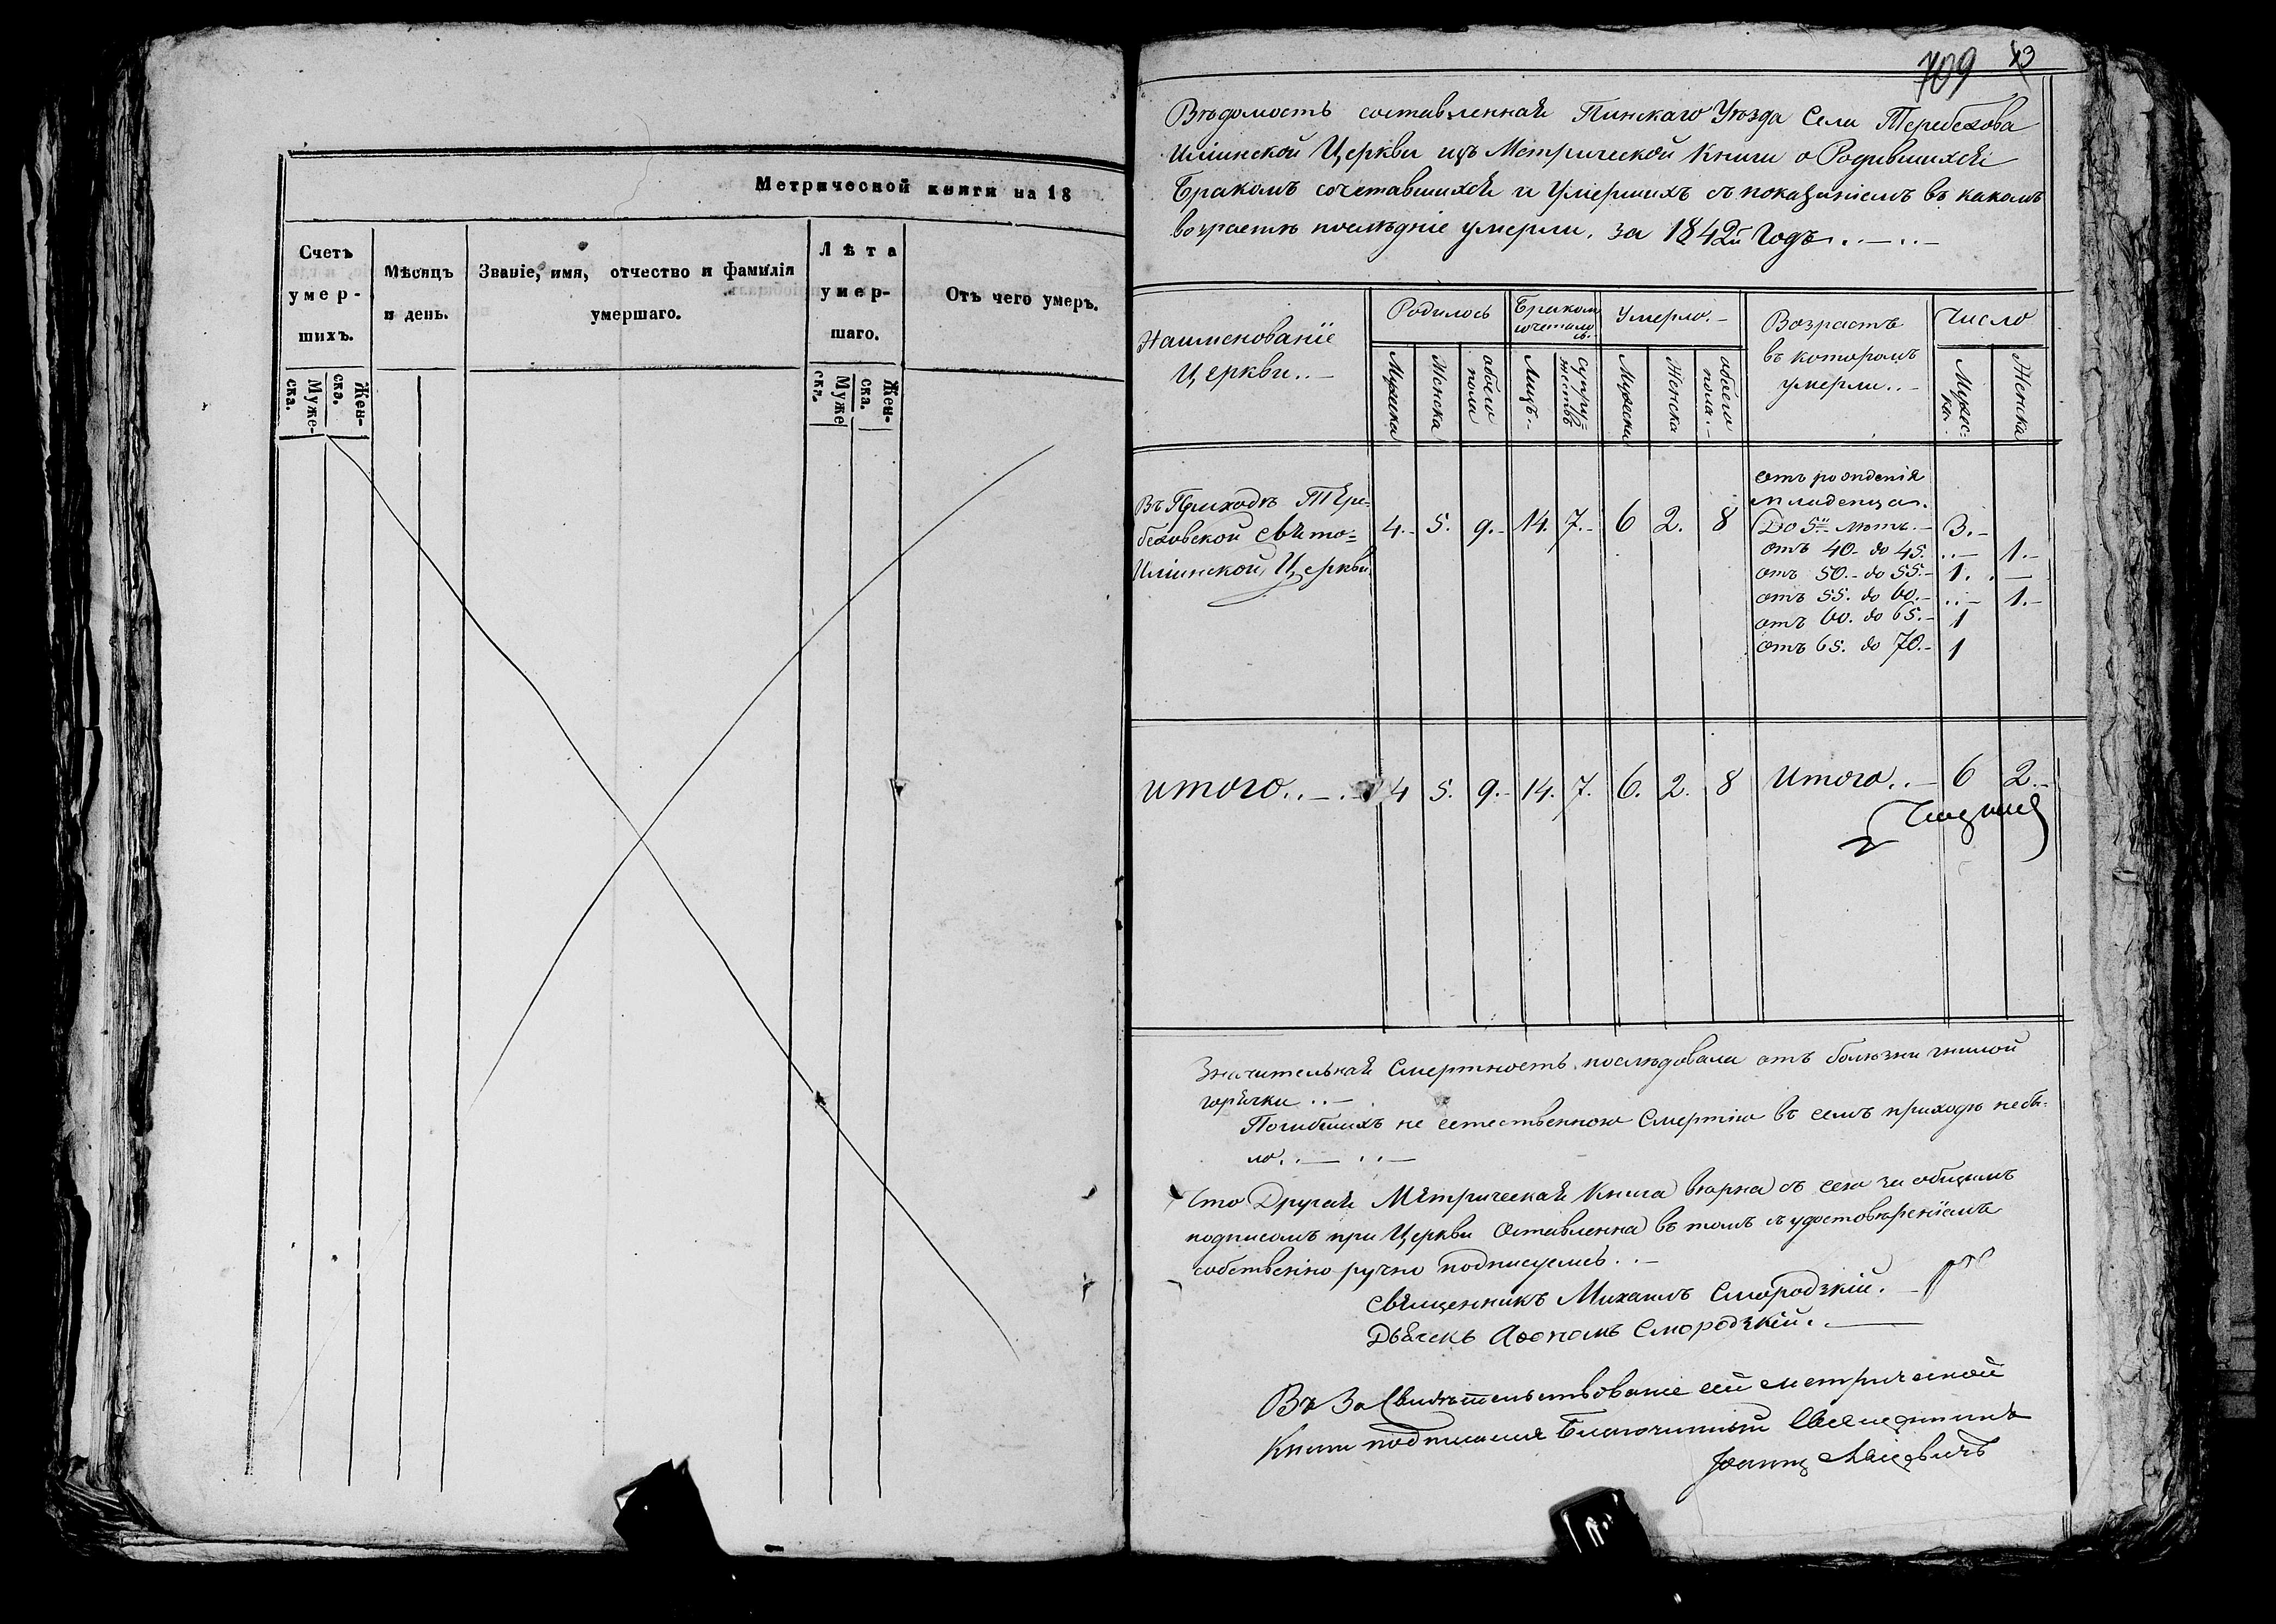 Метрической книги на 18
Счетъ умер- шихъ.
Муже- ска.
Жен- ска.
Мѣсяцъ и день.
Званіе, имя, отчество и фамилія
умершаго.
Лѣта умер- шаго.
Муже ска.
Жен- ска.
Отъ чего умеръ.
709 43
Вѣдомость составленная Пинскаго Уѣзда Села Теребехова
Иліинской Церкви изъ Метрической Книги о Родившихся
Бракомъ сочетавшихся и Умершихъ съ показаніемъ въ какомъ
возрастѣ послѣдніе умерли, за 1842й Годъ..—..—
Наименованіе
Церкви..—
Родилось
Мужеска
Женска
обоего пола
Бракомъ сочеталось.
Лицъ.
супру= жествъ
Умерло.—
Мужеска
Женска
обоего пола.—
Возрастъ
въ которомъ
умерли..—
Число
Мужес= ка.
Женска
Въ Приходѣ Тере-
беховской Свято=
Иліинской Церкви
4.- 5. 9.- 14. 7.- 6 2. 8
отъ рожденія
младенца.
До 5и лѣтъ.— 3.-
отъ 40- до 45. ..— 1.-
отъ 50.- до 55.- 1. .—
отъ 55. до 60.- ..— 1.-
отъ 60. до 65.- 1
отъ 65. до 70.- 1
итого..—.— 4 5. 9.- 14. 7. 6. 2. 8 Итого..— 6 2.-
Значительная Смертность послѣдовала отъ болѣзни гнилой
горячки ..—
Погибшихъ не естественною Смертію въ семъ приходѣ небы-
ло..— ..—
Что Другая Метрическая Книга вѣрна съ сею за общимъ
подписомъ при Церкви Оставленна въ томъ съ удостовѣреніемъ
собственно ручно подписуемъ..—
Священникъ Михаилъ Смородзкій.
Дьячекъ Смородзкій.
Въ За Свидѣтельствованіе сей метрической
Книги подписался Благочинный Священникъ
Іоаннъ